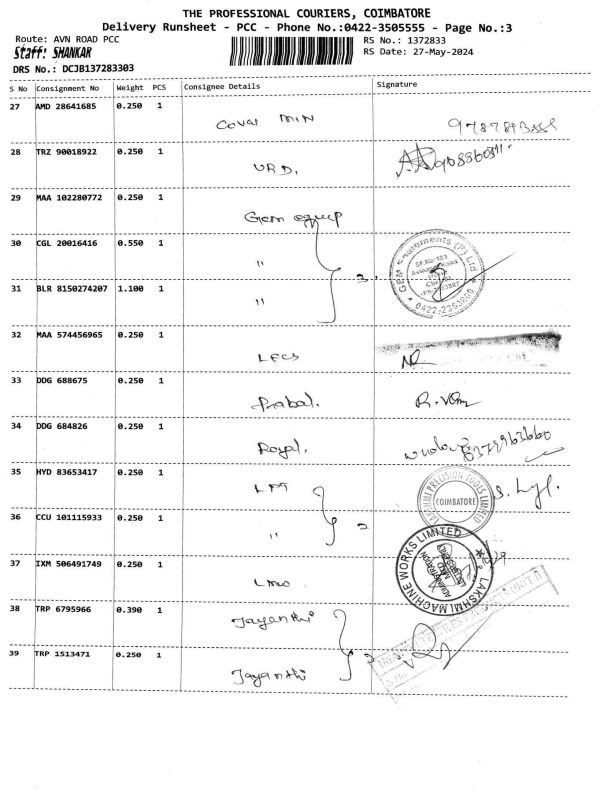 THE PROFESSIONAL COURIERS, COIMBATORE
Delivery Runsheet - PCC - Phone No.:0422-3505555 - Page No.:3
Route: AVN ROAD PCC
RS No.: 1372833
Staff: SHANKAR
RS Date: 27-May-2024
DRS No.: DCJB137283303
S No Consignment No Weight PCS Consignee Details Signature
27 AMD 28641685 0.250 1 Covai
28 TRZ 90018922 0.250 1 URD.
29 MAA 102280772 0.250 1 Gem equip
30 CGL 20016416 0.550 1 "
31 BLR 8150274207 1.100 1 " 3.
GEM Equipments (P) Ltd
0422-2363800
32 MAA 574456965 0.250 1
33 DDG 688675 0.250 1 Prabal.
34 DDG 684826 0.250 1 Royal.
35 HYD 83653417 0.250 1 LPT
LAKSHMI PRECISION TOOLS LIMITED
COIMBATORE
36 CCU 101115933 0.250 1 " 2
37 IXM 506491749 0.250 1 LMW
LAKSHMI MACHINE WORKS LIMITED
ADMINISTRATION
38 TRP 6795966 0.390 1 Jayanthi
39 TRP 1513471 0.250 1 Jayanthi 2